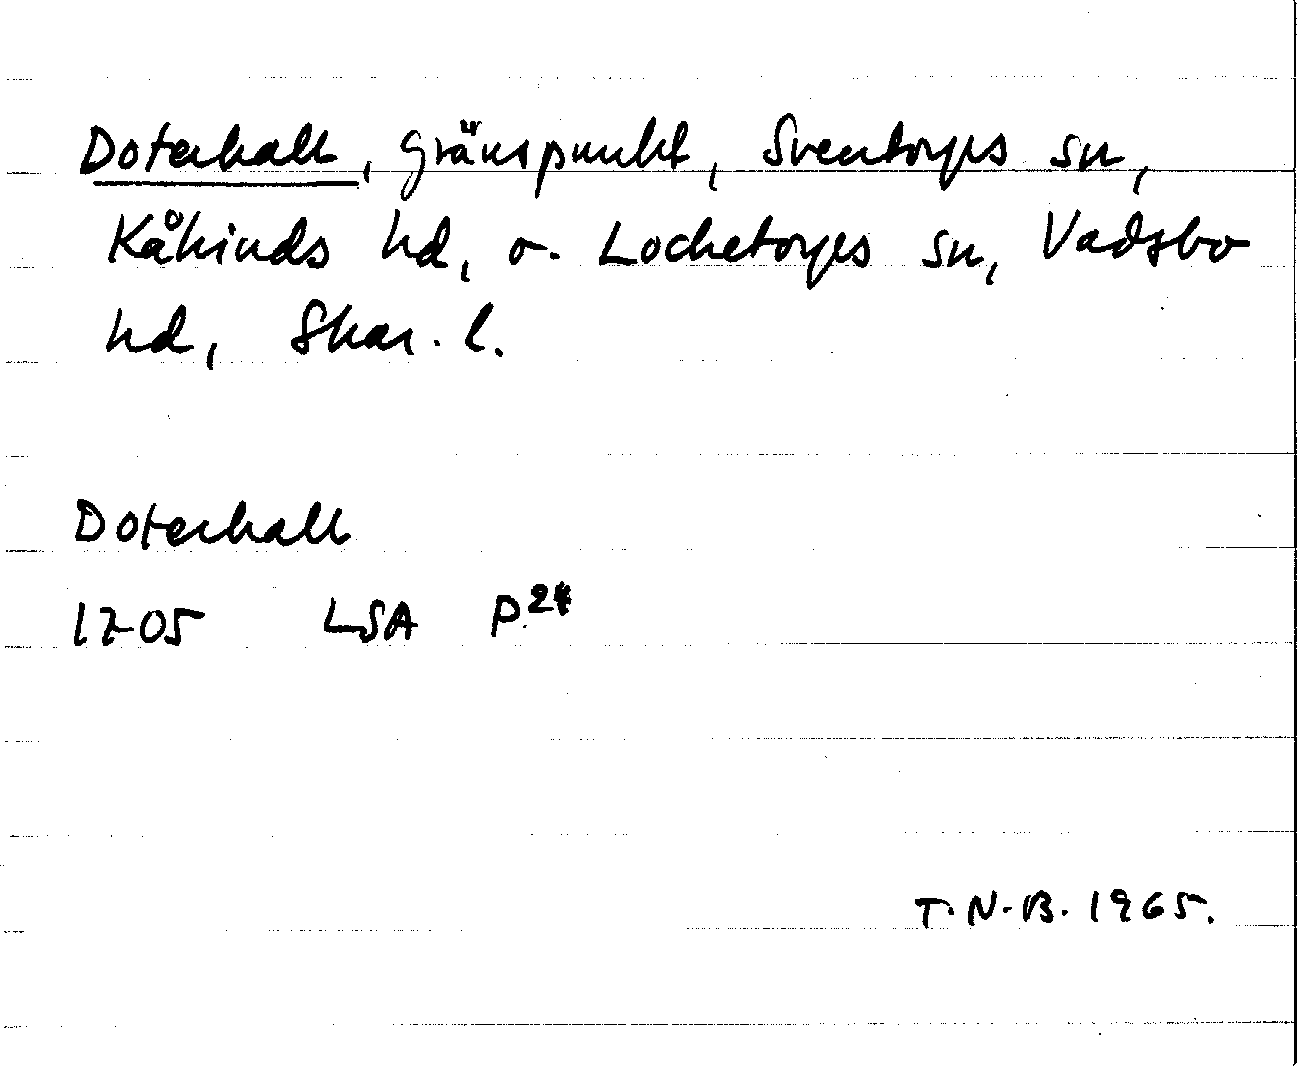 Doterhall, gränspunkt, Sventorps sn,
Kåkinds hd, o. Locketorps sn, Vadsbo
hd, Skar. l.
Doterhall
1705 LSA P 24
T.N.B. 1965.